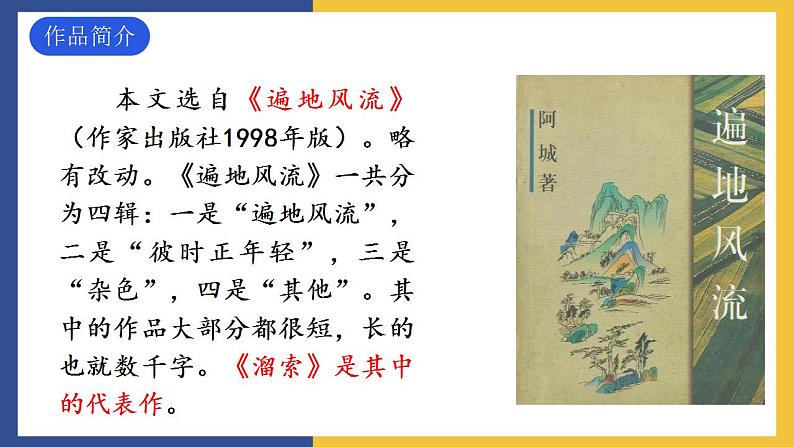 作品简介
本文选自《遍地风流》
（作家出版社1998年版）。略
有改动。《遍地风流》一共分
为四辑：一是“遍地风流”，
二是“彼时正年轻”，三是
“杂色”，四是“其他”。其
中的作品大部分都很短，长的
也就数千字。《溜索》是其中
的代表作。
阿城著
遍地风流